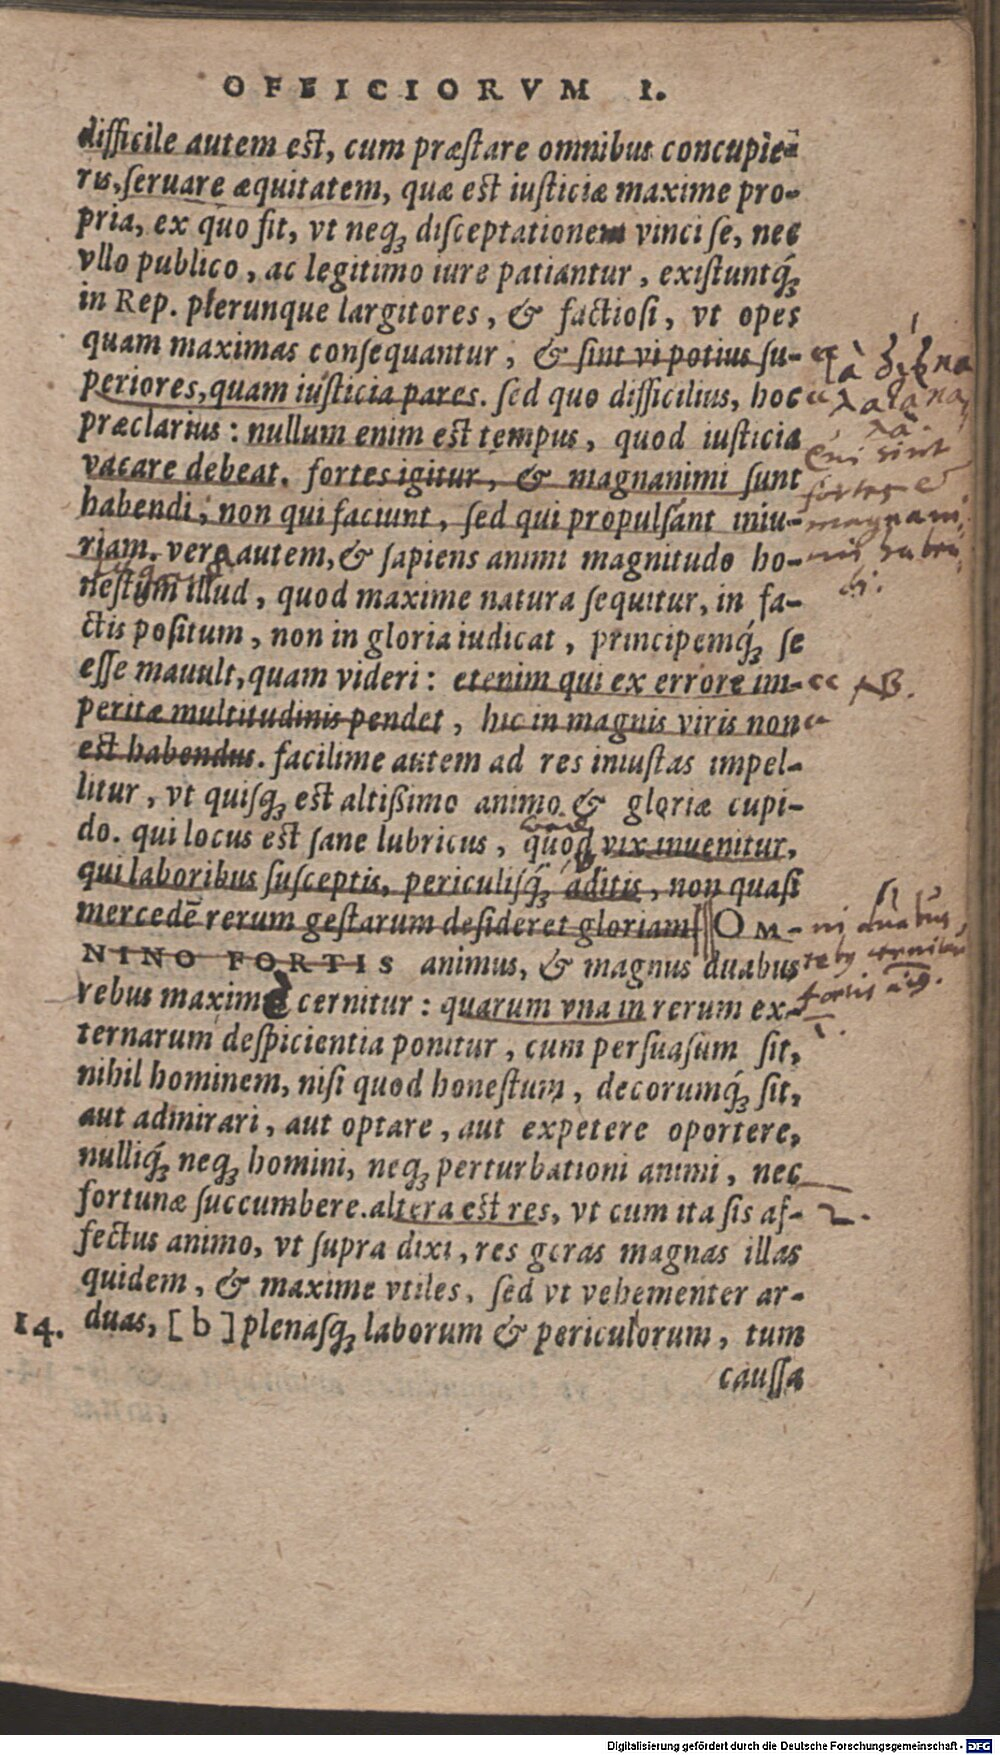 OFFICIORVM I.
difficile autem est, cum præstare omnibus concupie-
ris, seruare æquitatem, quæ est iusticiæ maxime pro-
pria, ex quo fit, vt neq; disceptatione vinci se, nec
vllo publico, ac legitimo iure patiantur, existuntq́;
in Rep. plerunque largitores, & factiosi, vt opes
quam maximas consequantur, & sint vi potius su-
periores, quam iusticia pares. sed quo difficilius, hoc
præclarius: nullum enim est tempus, quod iusticia
vacare debeat. fortes igitur, & magnanimi sunt
habendi, non qui faciunt, sed qui propulsant iniu-
riam. vera autem, & sapiens animi magnitudo ho-
nestum illud, quod maxime natura sequitur, in fa-
ctis positum, non in gloria iudicat, principemq́; se
esse mauult, quam videri: etenim qui ex errore im-
peritæ multitudinis pendet, hic in magnis viris non
est habendus. facilime autem ad res iniustas impel-
litur, vt quisq; est altißimo animo & gloriæ cupi-
do. qui locus est sane lubricus, quod vix inuenitur,
qui laboribus susceptis, periculisq́; aditis, non quasi
mercedē rerum gestarum desideret gloriam. OM-
NINO FORTIS animus, & magnus duabus
rebus maximè cernitur: quarum vna in rerum ex-
ternarum despicientia ponitur, cum persuasum sit,
nihil hominem, nisi quod honestum, decorumq́; sit,
aut admirari, aut optare, aut expetere oportere,
nulliq́; neq; homini, neq; perturbationi animi, nec
fortunæ succumbere. altera est res, vt cum ita sis af-
fectus animo, vt supra dixi, res geras magnas illas
quidem, & maxime vtiles, sed vt vehementer ar-
14. duas, [b] plenasq; laborum & periculorum, tum
caussa
Qui sint
fortes &
magnani-
mi haben-
di.
NB.
duabus
rebus cernitur
fortis
1.
2.
Digitalisierung gefördert durch die Deutsche Forschungsgemeinschaft - DFG